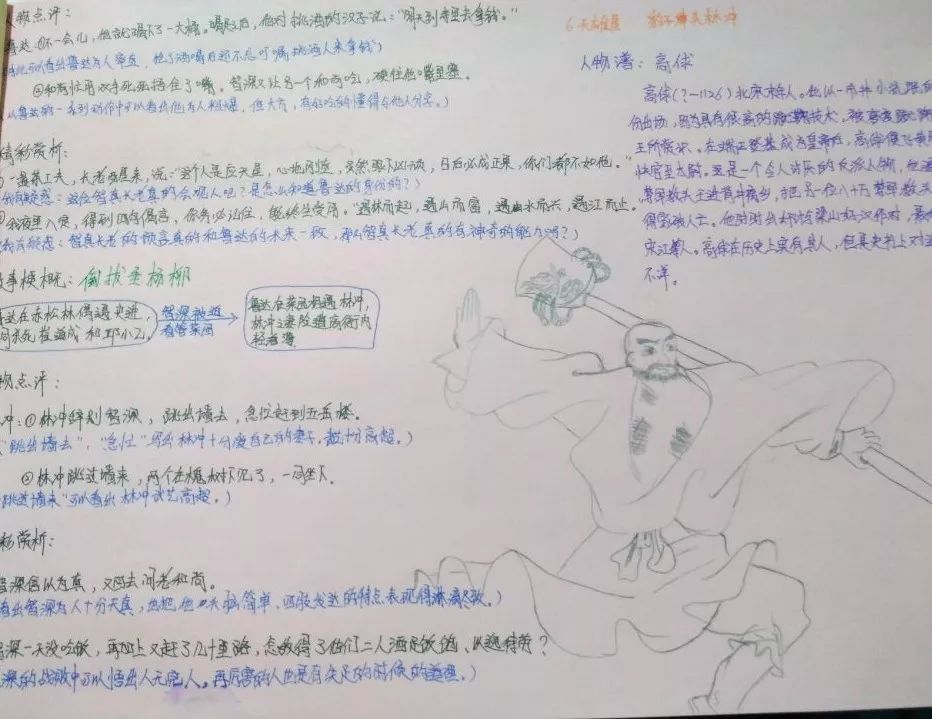 人物点评：
鲁达：①不一会儿，他就喝了一大桶。喝完之后，他对挑酒的汉子说：“明天到寺里去拿钱。”
可以看出鲁达为人率直，抢了酒喝后还不忘叮嘱挑酒人来拿钱）
②和尚忙用双手死死捂住了嘴。智深又让另一个和尚吃，硬往他嘴里塞。
从鲁达的一系列动作中可以看出他为人粗鲁，但大方，有好吃的懂得与他人分享。）
精彩赏析：
一盏茶工夫，长老醒来，说：“这个人是应天星，心地刚直，安然眼下凶顽，日后必成正果，你们都不如他。”
我有疑惑：这位智真长老真的会识人吧？是怎么知道鲁达的身份的？）
夜里入定，得到四句偈言，你务必记住，能终生受用。“遇林而起，遇山而富，遇水而兴，遇江而止。
我有疑惑：智真长老的预言真的和鲁达的未来一致，那么智真长老真的有神奇的能力吗？）
故事梗概：倒拔垂杨柳
鲁达在赤松林偶遇史进，
何杀死崔道成和邱小乙。
智深被迫
看管菜园
鲁达在菜园相遇林冲，
林冲之妻险遭高衙内
轻薄
人物点评：
林冲：①林冲辞别智深，跳出墙去，急忙赶到五岳楼。
“跳出墙去”，“急忙”写出林冲十分爱自己的妻子，武艺十分高超。）
②林冲跳过墙来，两个在槐树下见了，一同坐下。
“跳过墙来”可以看出林冲武艺高超。）
精彩赏析：
智深信以为真，又回去问老和尚。
看出智深为人十分天真，也把他头脑简单、四肢发达的特点表现得淋漓尽致。）
智深一天没吃饭，再加上又赶了几十里路，怎敌得了他们二人酒足饭饱，以逸待劳？
智深的战败中可以悟出人无完人。再厉害的人也是有失足的时候的道理。）
6 天雄星 豹子头林冲
人物谱：高俅
高俅(？—1126)北京本府人。他从一市井小流氓
份出场，因为具有很高的踢球技术，被
王所赏识。在端王登基成为皇帝后，高俅便飞黄
快官至太尉。这是一个令人讨厌的反派人物，他逼
禁军教头王进背井离乡，把另一位八十万禁军教头
得家破人亡。他时时当朝与梁山好汉作对，最
宋江等人。高俅在历史上实有其人，但其史书上对
不详。